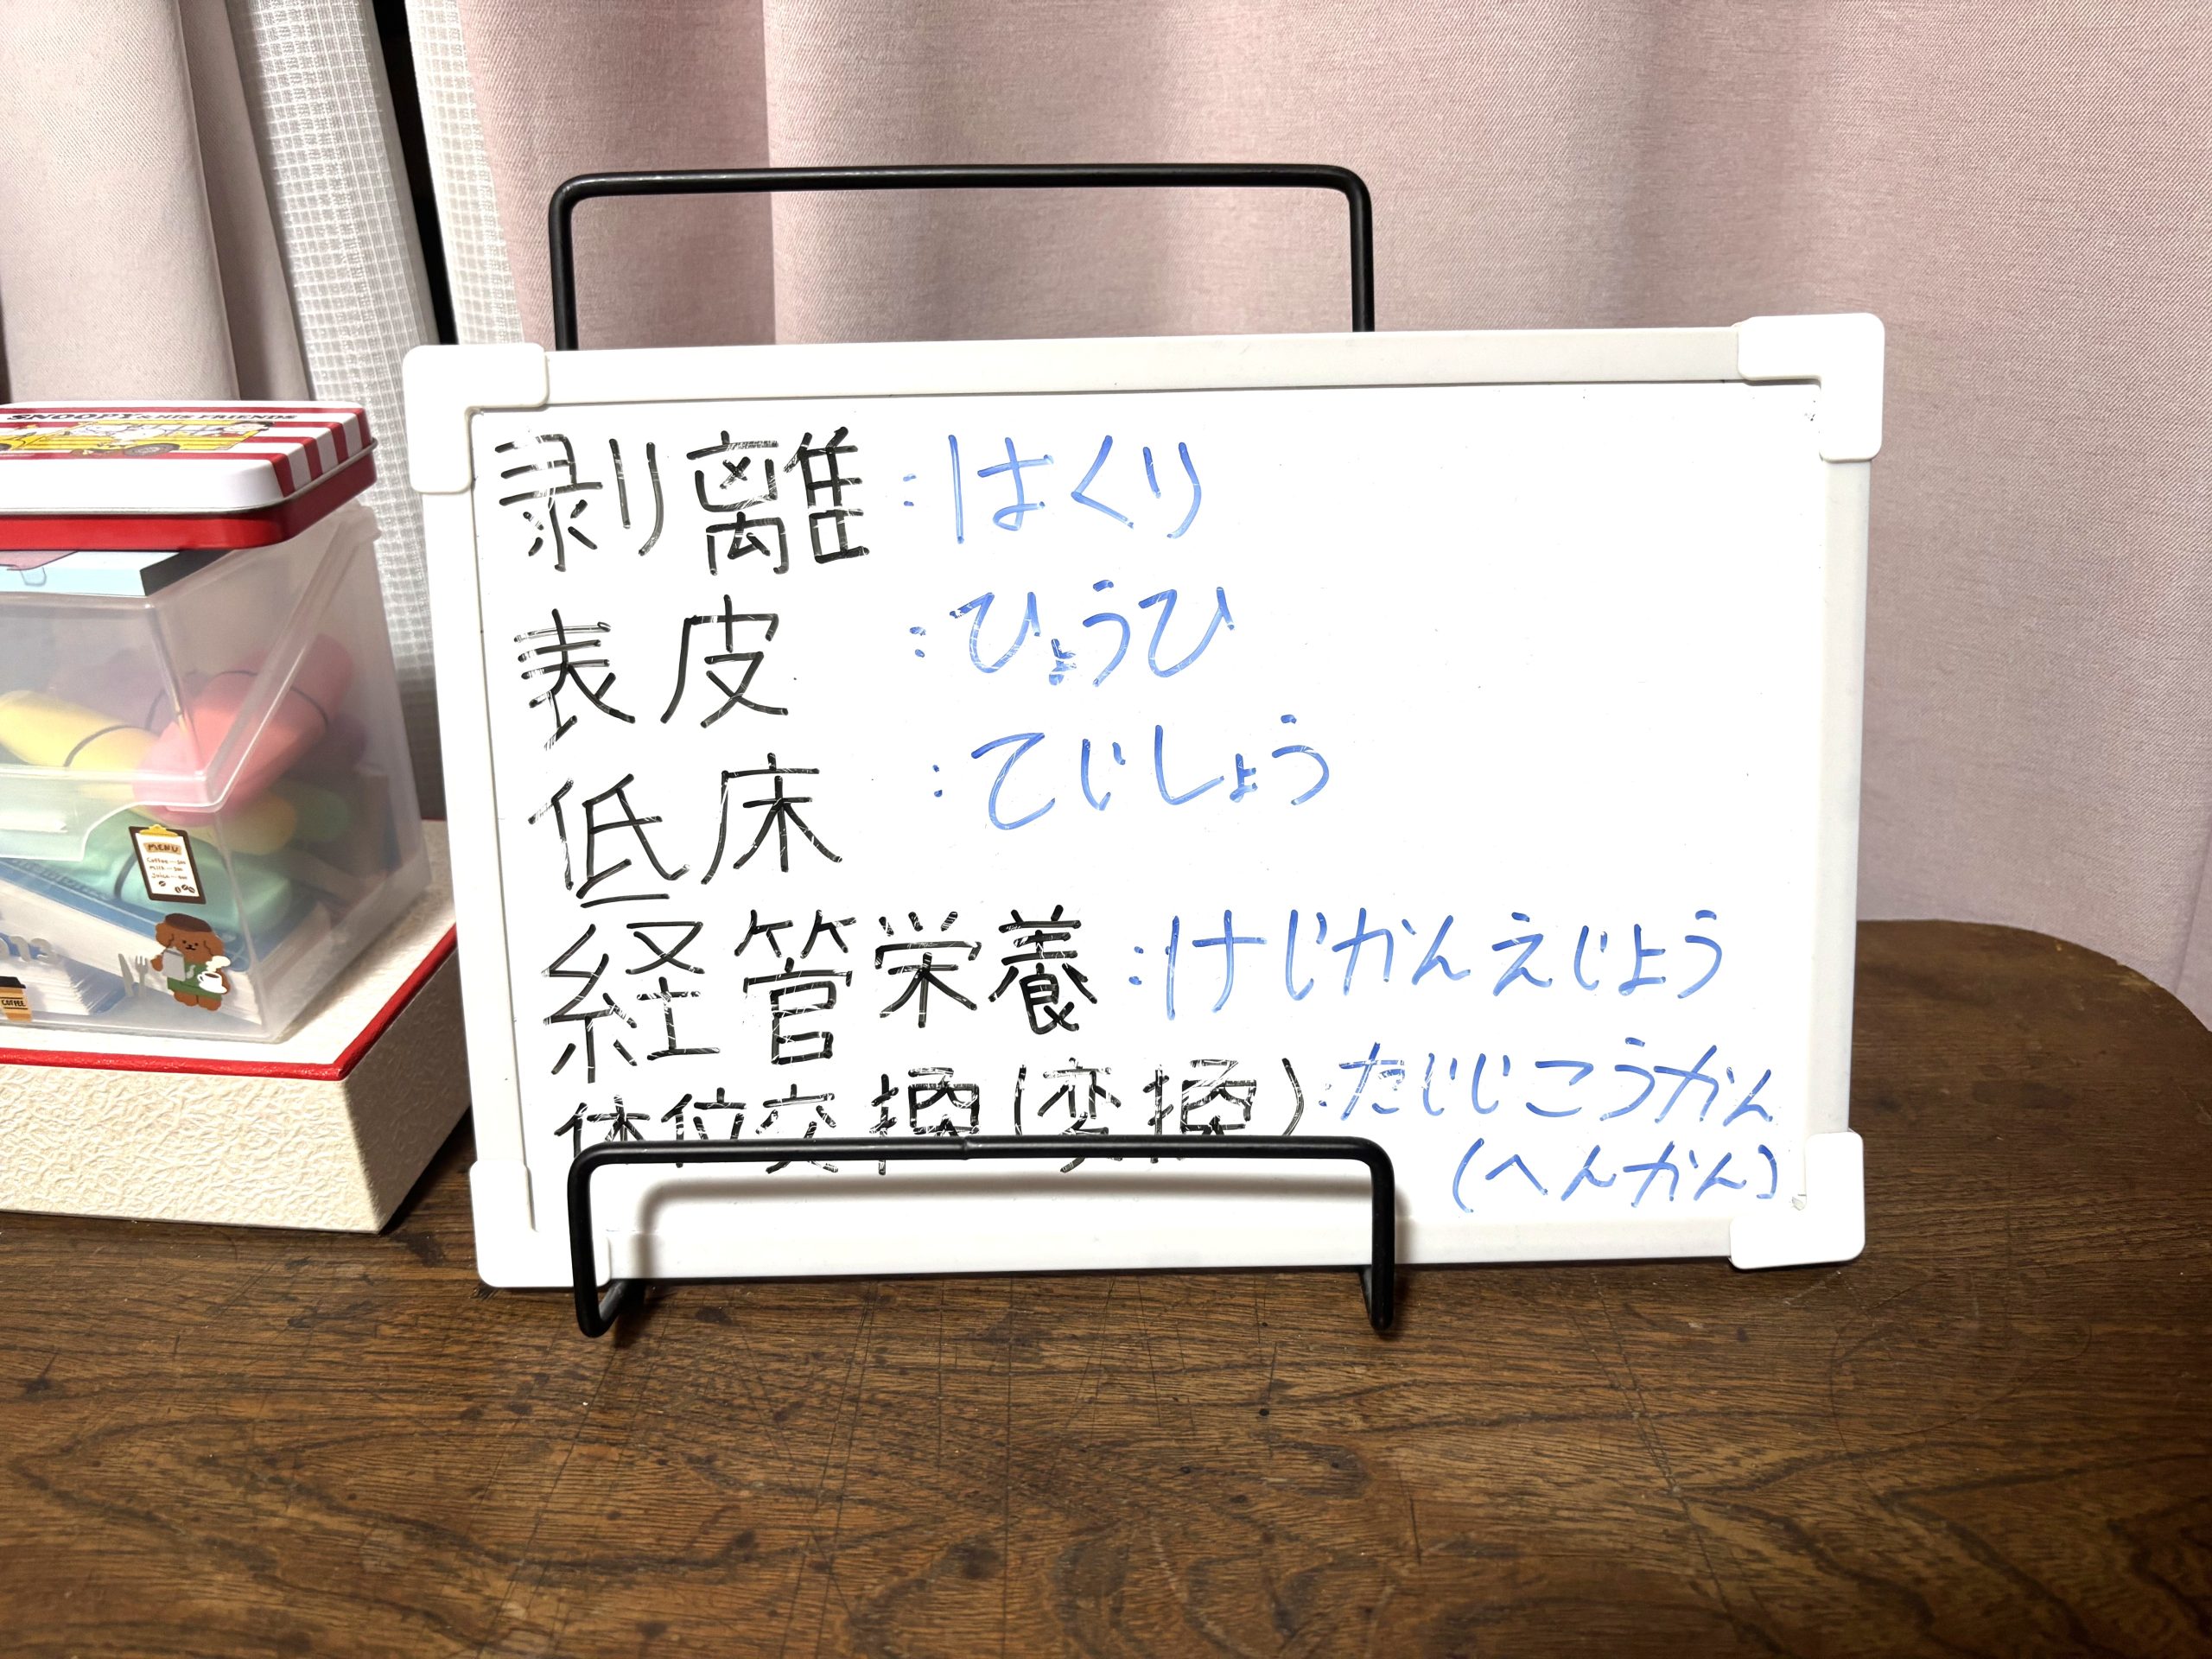 SNOOPY & HIS FRIENDS
MENU
Coffee
COFFEE
剥離:はくり
表皮:ひょうひ
低床:てじしょう
経管栄養:けじかんえじよう
体位交換(変換):たじじこうかん
(へんかん)